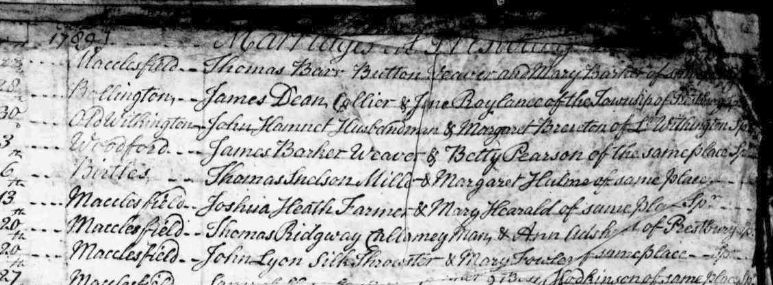 1789 Marriages at Prestbury
Macclesfield -- Thomas Barr Button Weaver and Mary Barker of same
28 Bollington -- James Dean Collier & Jane Roylance of the Township of Prestbury
30 Old Withington -- John Hamnet Husbandman & Margaret Brereton of Lr. Withington Sp
3 Woodford -- James Barker Weaver & Betty Pearson of the same place Sp
6 Birtles -- Thomas Snelson Miller & Margaret Hulme of same place
13 Macclesfield -- Joshua Heath Farmer & Mary Hearald of same place Sp
20 Macclesfield -- Thomas Ridgway Callamey Man & Ann Adshet of Prestbury
20 Macclesfield -- John Lyon Silk Throwster & Mary Fowler of same place -- Sp
27 Macclesfield Hodkinson of same place Sp